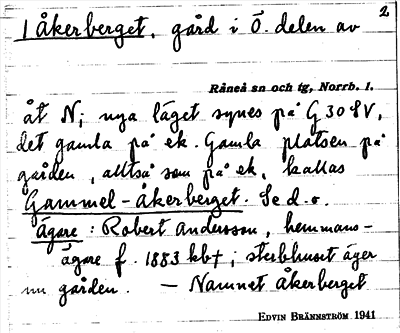 2
1 åkerberget, gård i Ö. delen av
Råneå sn och tg, Norrb. l.
åt N; nya läget synes på G 30 8V,
det gamla på ek. Gamla platsen på
gården, alltså som på ek, kallas
Gammel-åkerberget. Se d.o.
ägare: Robert Andersson, hemmans-
ägare f. 1883 kb†; sterbhuset äger
nu gården. — Namnet åkerberget
EDVIN BRÄNNSTRÖM 1941